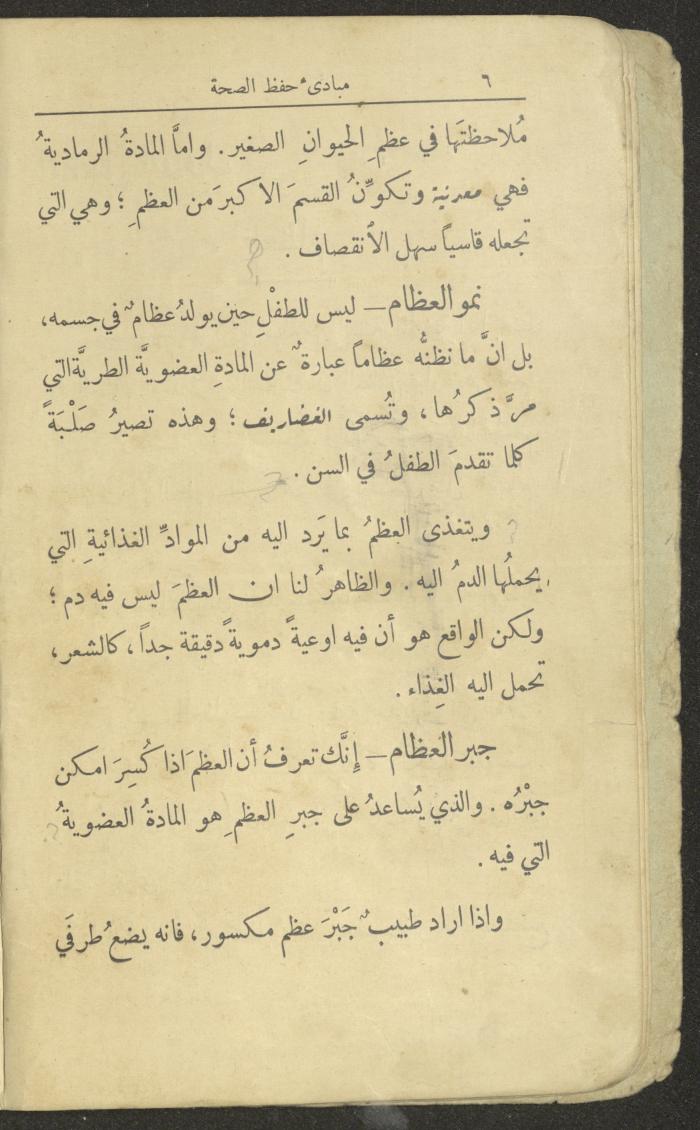 ٦ مبادئ حفظ الصحة
مُلاحظتَها في عظمِ الحيوانِ الصغير . واماَّ المادةُ الرماديةُ
فهي معدنية وتكوِّنُ القسمَ الاكبرَ من العظمِ ؛ وهي التي
تجعله قاسياً سهل الأنقصاف .
نمو العظام — ليس للطفْلِ حين يولدُ عظامٌ في جسمه،
بل انَّ ما نظنهُّ عظاماً عبارةٌ عن المادةِ العضويَّة الطريَّة التي
مرَّ ذكرُها ، وتُسمى الغضاريف ؛ وهذه تصيرُ صَلْبَةً
كلما تقدمَ الطفلُ في السن .
ويتغذى العظمُ بما يَرد اليه من الموادِّ الغذائيةِ التي
يحملُها الدمُ اليه . والظاهرُ لنا ان العظمَ ليس فيه دم ؛
ولكن الواقع هو أن فيه اوعيةً دمويةً دقيقة جداً ، كالشعر ،
تحمل اليه الغِذاء .
جبر العظام — إِنَّك تعرفُ أن العظمَ اذا كُسِرَ امكن
جبْرُه . والذي يُساعدُ على جبرِ العظمِ هو المادةُ العضويةُ
التي فيه .
واذا اراد طبيبٌ جَبْرَ عظم مكسور ، فانه يضعُ طرفَي